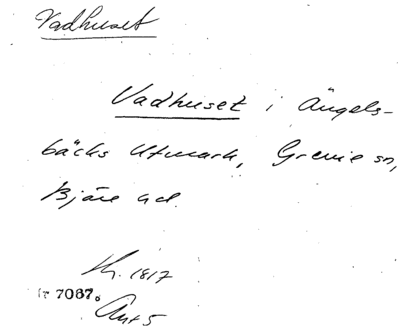 Vadhuset
Vadhuset i Ängels-
bäcks Utmark, Grevie sn,
Bjäre hd.
Kh. 1817
r 7087.
Ant 5